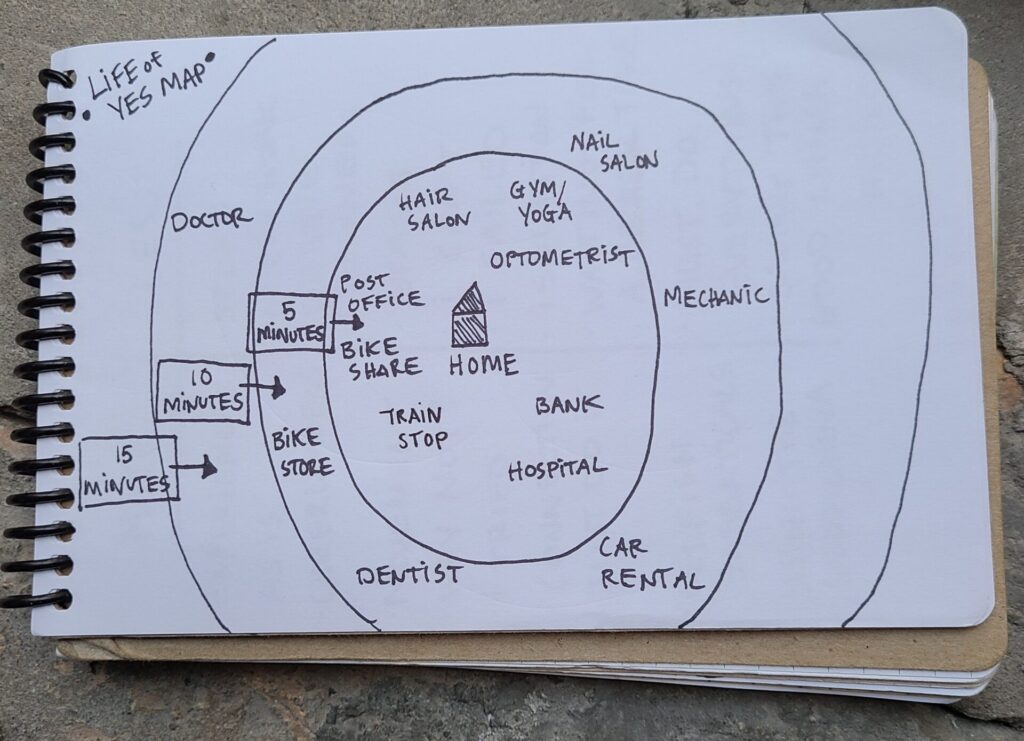 • LiFE oF
YES MAP •
NAiL
SALON
HAiR
SALON
GYM/
YOGA
DOCTOR
OPTOMETRiST
POST
OFFiCE
MECHANiC
5
MiNUTES
BiKE
SHARE
HOME
10
MiNUTES
TRAiN
STOP
BANK
BiKE
STORE
15
MiNUTES
HOSPiTAL
DENTiST
CAR
RENTAL